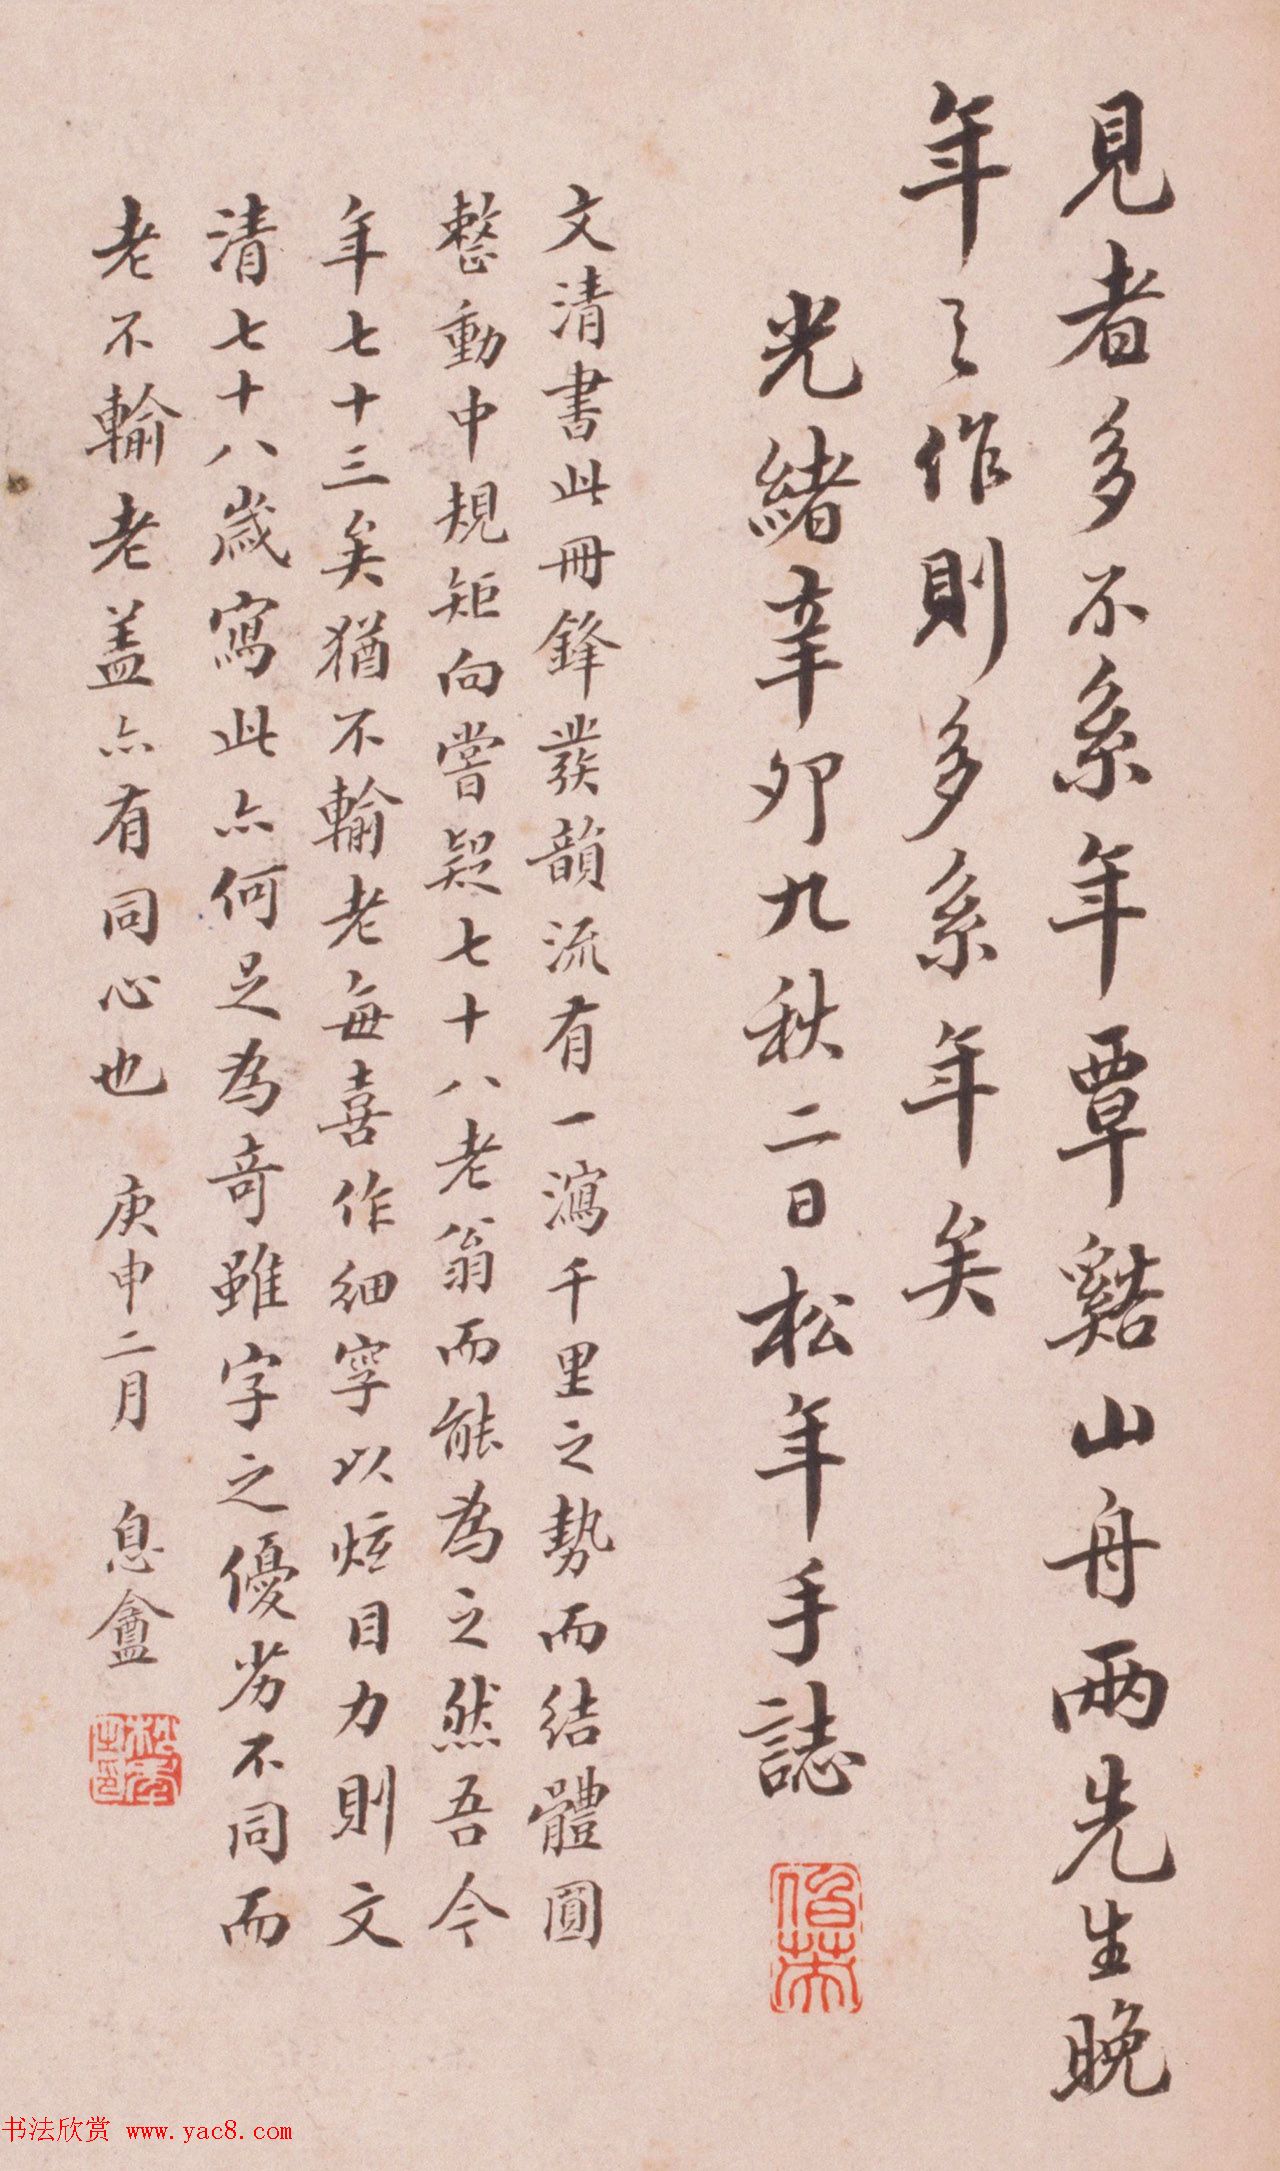 見者多不系年覃谿山舟兩先生晚
年之作則多系年矣
光緒辛卯九秋二日松年手誌
文清書此冊鋒發韻流有一瀉千里之勢而結體圓
整動中規矩向嘗疑七十八老翁而能為之然吾今
年七十三矣猶不輸老每喜作細字以炫目力則文
清七十八歲寫此亦何足為奇雖字之優劣不同而
老不輸老盖亦有同心也 庚申二月 息盦
书法欣赏 www.yac8.com